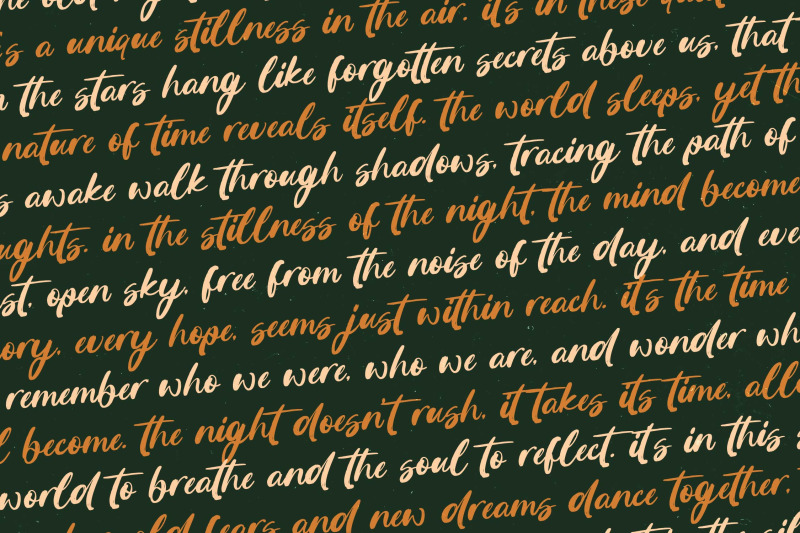 is a unique stillness in the air. it's in these
the stars hang like forgotten secrets above us, that
nature of time reveals itself. the world sleeps, yet
awake walk through shadows, tracing the path of
in the stillness of the night, the mind become
open sky, free from the noise of the day, and
every hope, seems just within reach. it's the time
remember who we were, who we are, and wonder
become. the night doesn't rush, it takes its time,
world to breathe and the soul to reflect. it's in this
old fears and new dreams dance together,